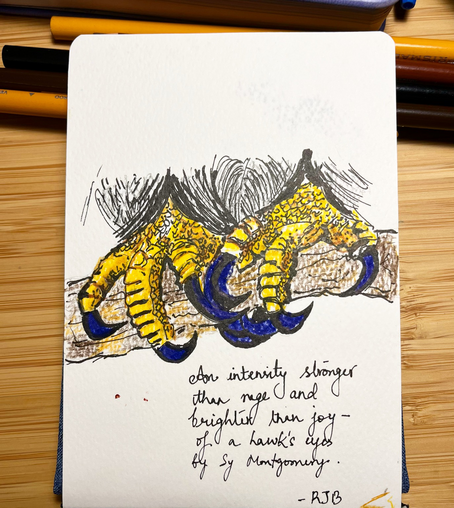 An intensity stronger
than rage and
brighter than joy –
of a hawk's eyes
by Sy Montgomery.
– RJB